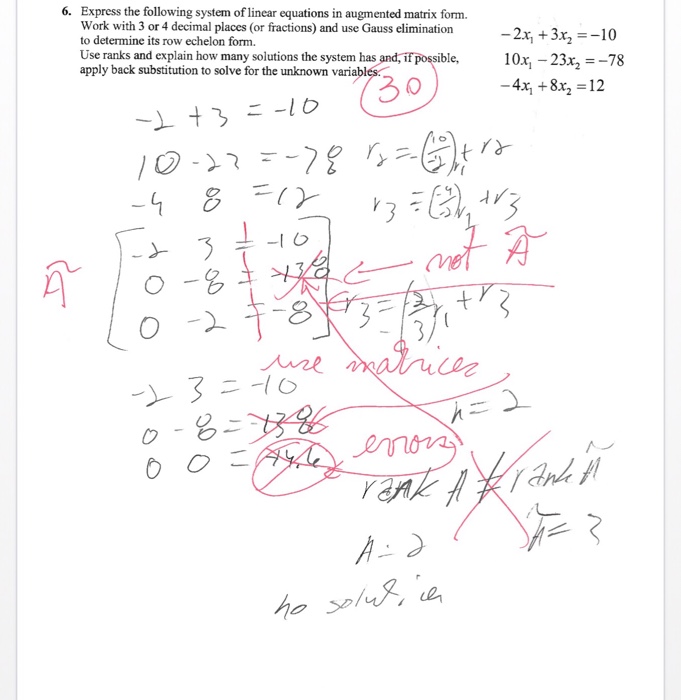 6. Express the following system of linear equations in augmented matrix form.
Work with 3 or 4 decimal places (or fractions) and use Gauss elimination
to determine its row echelon form.
Use ranks and explain how many solutions the system has and, if possible,
apply back substitution to solve for the unknown variables.
-2x₁ + 3x₂ = -10
10x₁ - 23x₂ = -78
-4x₁ + 8x₂ = 12
30
-2 +3 = -10
10 -23 = -78 r2 = -(10/-2)r1 + r2
-4 8 = 12 r3 = (-4/-2)r1 + r3
-2 3 = -10
Ã 0 -8 = ← not Ã
0 -2 = -8 r3 = (2/3)r1 + r3
use matrices
-2 3 = -10
0 -8 =
0 0 = errors
n = 2
rank A ≠ rank Ã
A = 2 Ã = 3
no solution